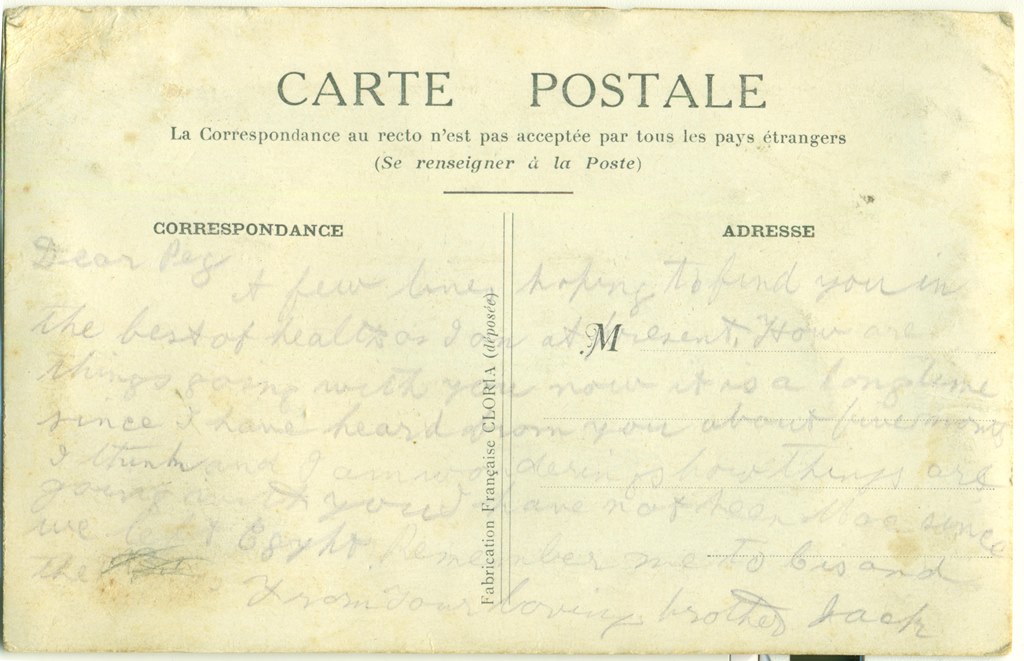 CARTE POSTALE
La Correspondance au recto n'est pas acceptée par tous les pays étrangers
(Se renseigner à la Poste)
CORRESPONDANCE
ADRESSE
Dear Peg
A few lines hoping to find you in
the best of health as I am at present. How are
things going with you now it is a long time
since I have heard from you about five months
I think and I am wondering how things are
going with you I have not seen Mac since
we left Egypt Remember me to and
the
From Your loving brother Jack
M
Fabrication Française CLORIA (déposée)